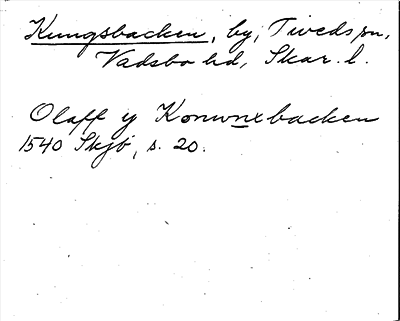 Kungsbacken, by, Tiveds sn,
Vadsbo hd, Skar. l.
Olaff y Konunxbacken
1540 Skjb, s. 20.